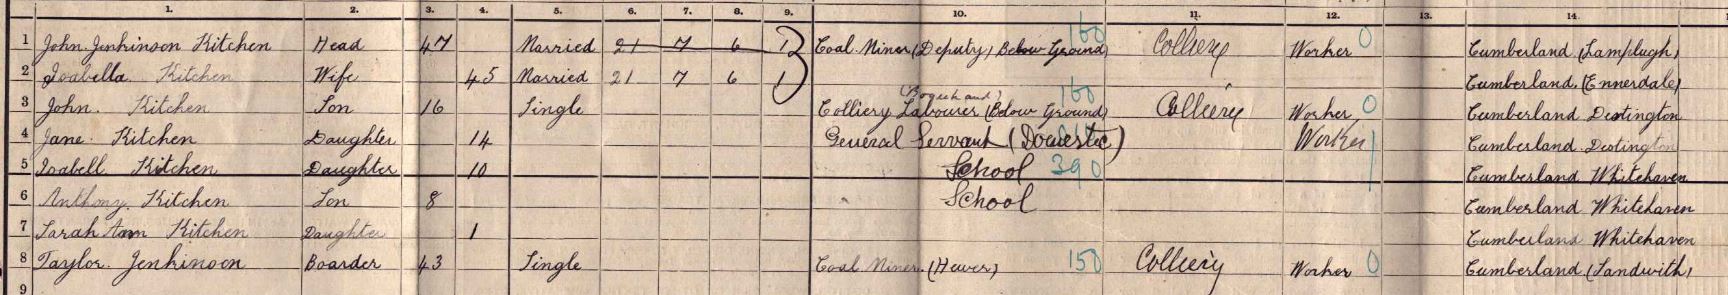 1. 2. 3. 4. 5. 6. 7. 8. 9. 10. 11. 12. 13. 14.
1 John Jenkinson Kitchen Head 47 Married 21 7 6 1 Coal Miner (Deputy) Below Ground) 160 Colliery Worker 0 Cumberland (Lamplugh)
2 Isabella Kitchen Wife 45 Married 21 7 6 1 Cumberland (Ennerdale)
3 John Kitchen Son 16 Single Colliery Labourer (Below Ground) 160 Colliery Worker 0 Cumberland Distington
4 Jane Kitchen Daughter 14 General Servant (Domestic) Worker 1 Cumberland Distington
5 Isabell Kitchen Daughter 10 School 390 Cumberland Whitehaven
6 Anthony Kitchen Son 8 School Cumberland Whitehaven
7 Sarah Ann Kitchen Daughter 1 Cumberland Whitehaven
8 Taylor Jenkinson Boarder 43 Single Coal Miner (Hewer) 150 Colliery Worker 0 Cumberland (Sandwith)
9